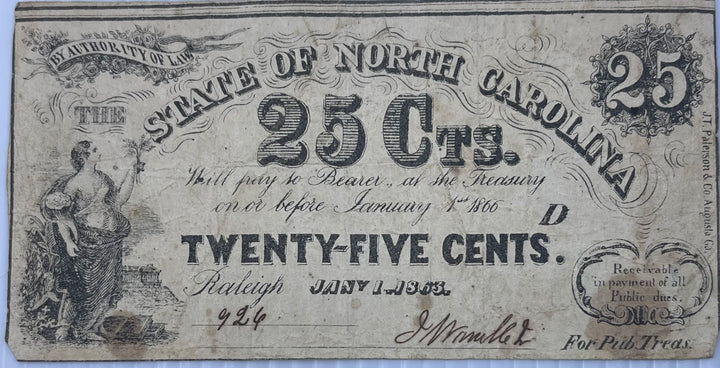 BY AUTHORITY OF LAW
THE
STATE OF NORTH CAROLINA
25
25 CTS.
Will pay to Bearer, at the Treasury
on or before January 1st 1866
D
TWENTY-FIVE CENTS.
Raleigh JANY 1. 1863.
926
Receivable
in payment of all
Public dues.
For Pub. Treas.
J.T. Paterson & Co Augusta Ga.